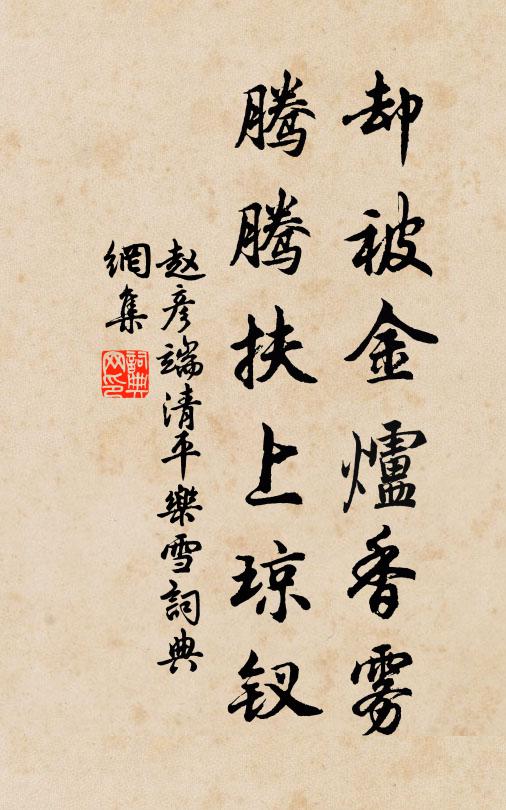 却被金爐香雾
腾腾扶上琼钗
赵彦端清平樂雪詞典
網集
詞典网印